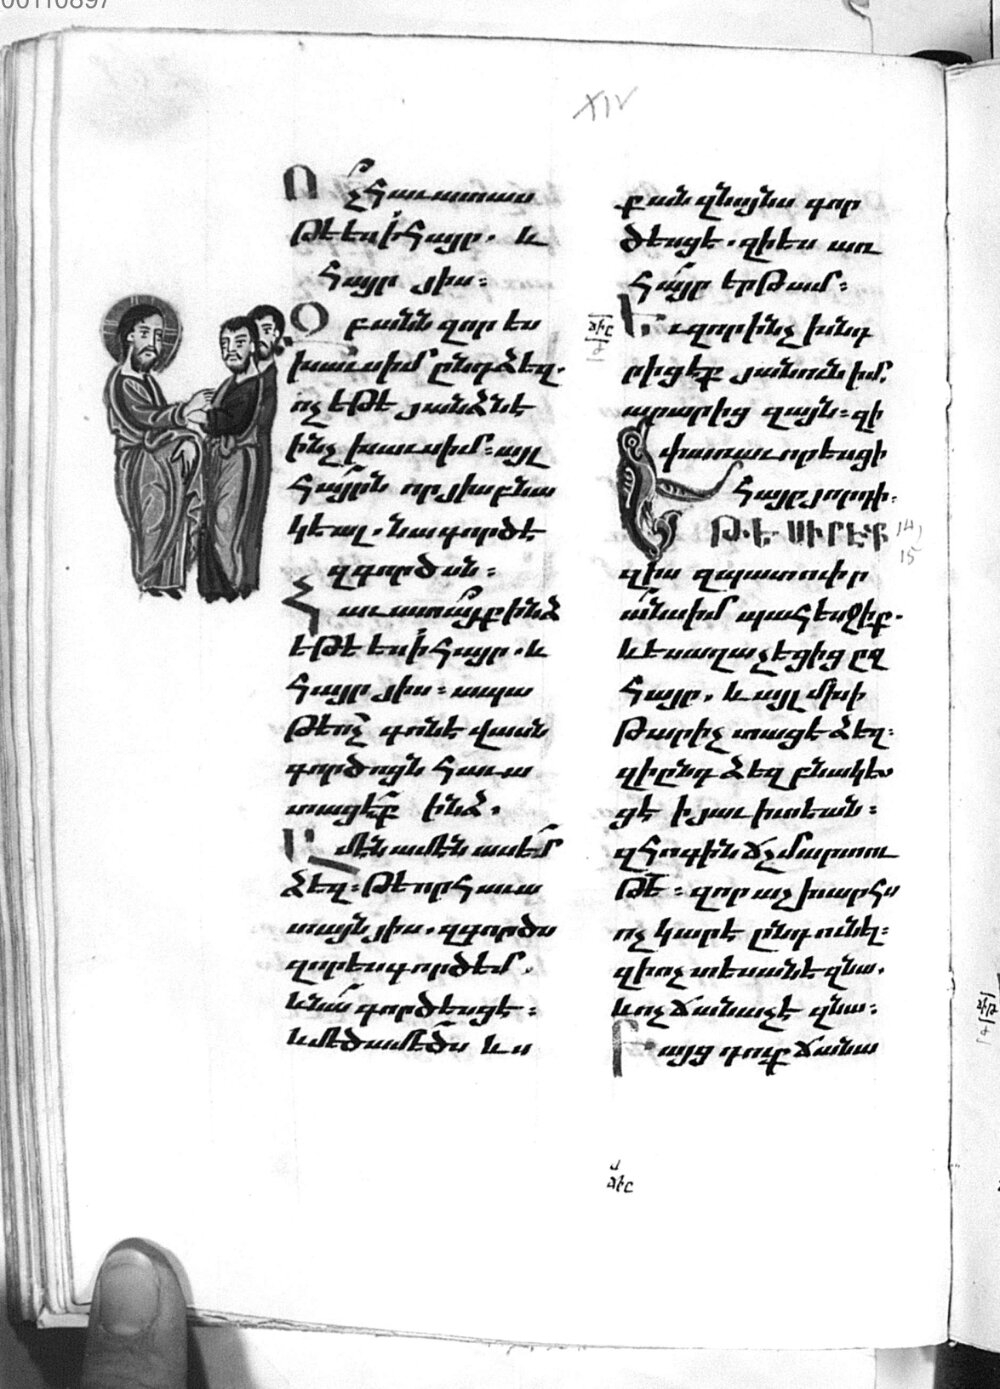 00110897
XIV
Ո չհաւատաս
թե ես ի հայր. և
հայր յիս։
Զ բանն զոր ես
խաւսիմ ընդ ձեզ.
ոչ եթե յանձնէ
ինչ խաւսիմ։ այլ
հայրն որ յիս բնա
կեալ. նա գործէ
զգործսն։
Հ աւատայք ինձ
եթէ ես ի հայր. և
հայր յիս։ ապա
թե ոչ գոնե վասն
գործոյն հաւա
տացեք ինձ.
Ա մէն ամէն ասեմ
ձեզ։ թե որ հաւա
տայն յիս. զգործս
զոր ես գործեմ.
և նա գործեսցե։
և մեծամեծս ևս
քան զնոյնս գոր
ծեսցե. զի ես առ
հայր երթամ։
Ե ւ զոր ինչ խնդ
րիցեք յանուն իմ.
արարից զայն։ զի
փառաւորեսցի
հայր յորդի։
Թ. Ե. ՍԻՐԷՔ
14,
15
զիս զպատուիր
անս իմ պահեսջիք.
և ես աղաչեցից ըզ
հայր. և այլ մխի
թարիչ տացե ձեզ։
զի ընդ ձեզ բնակես
ցե ի յաւիտեան։
զհոգին ճշմարտու
թե։ զոր աշխարհս
ոչ կարէ ընդունել։
զի ոչ տեսանե զնա.
և ոչ ճանաչէ զնա։
Բ այց դուք ճանա
ճիը